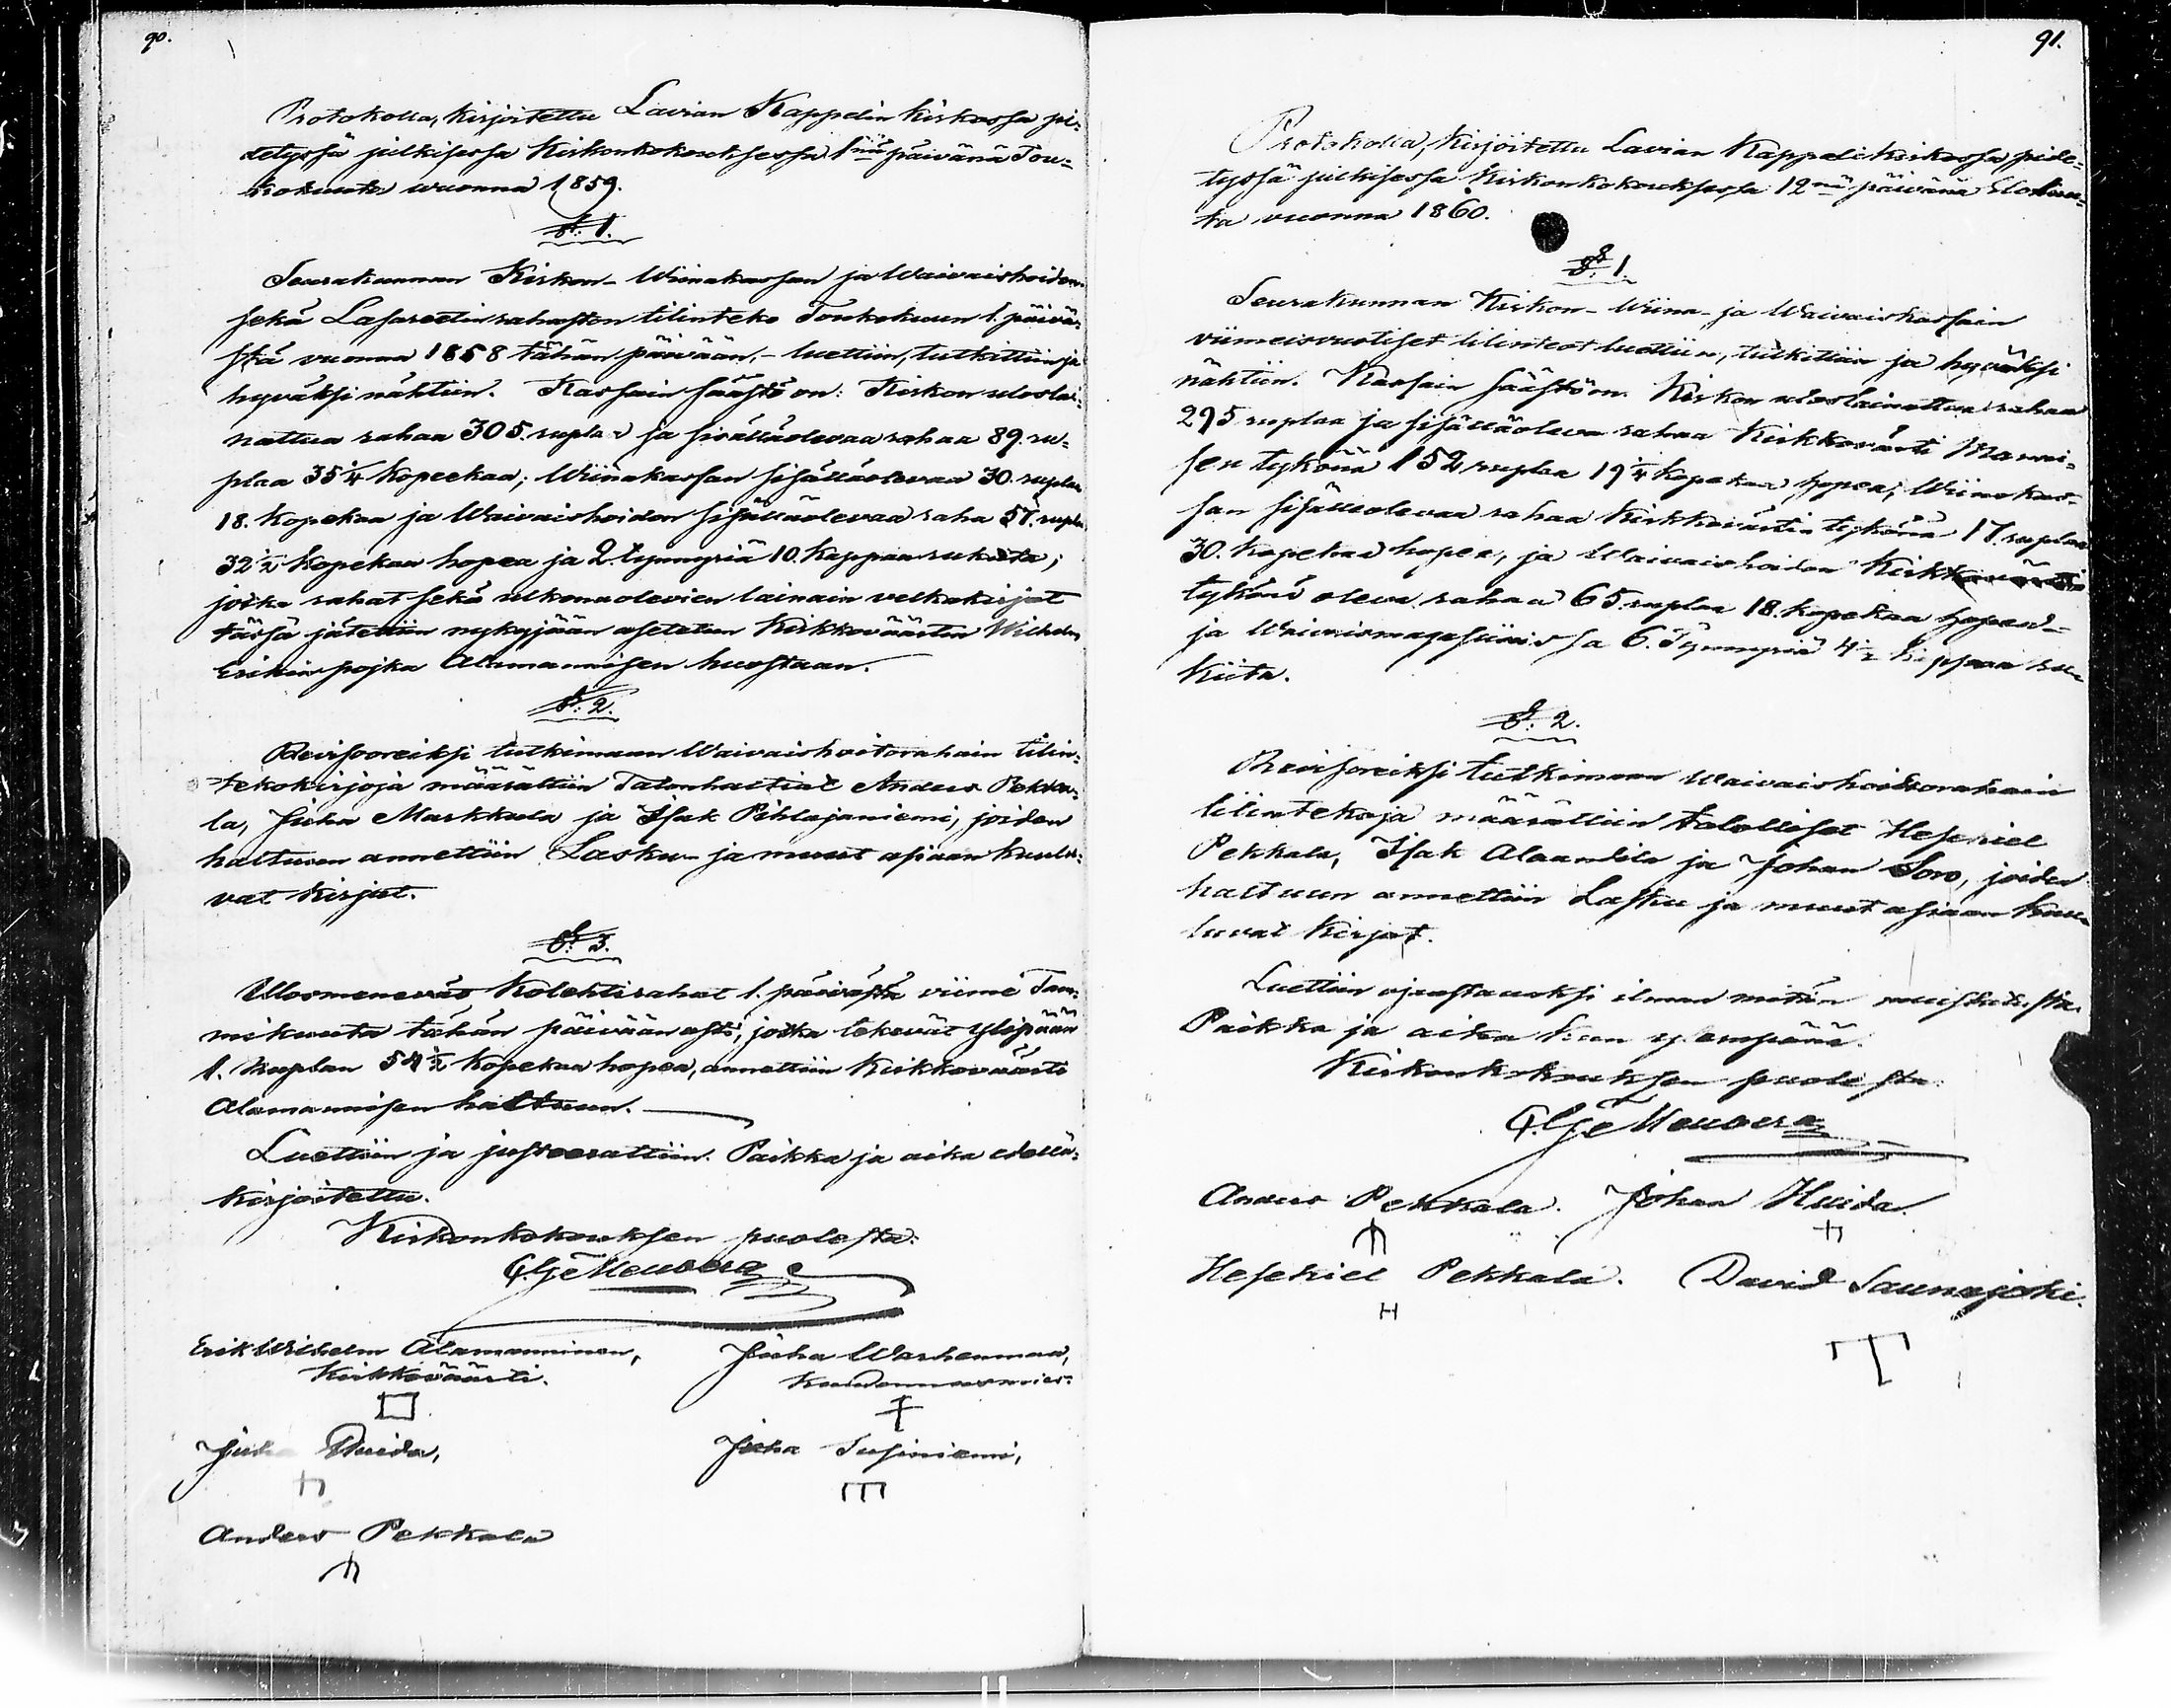 90.
Protokolla, kirjoitettu Lavian Kappelin kirkossa pi-
detyssä julkisessa Kirkonkokouksessa 1nä päivänä Tou-
kokuuta vuonna 1859.
§. 1.
Seurakunnan Kirkon- Wiinakassan ja Waivaishoidon
sekä Lasareetin rahasten tilinteko Toukokuun 1. päiväs-
stä vuonna 1858 tähän päivään,- luettiin, tutkittiin ja
hyväksi nähtiin. Kassain säästö on: Kirkon uloslai-
nattua rahaa 305. ruplaa ja sisälläolevaa rahaa 89. ru-
plaa 35 1/4 kopeekaa; Wiinakassan sisälläolevaa 30. ruplaa
18. kopekaa ja Waivaishoidon sisälläolevaa raha 57. rupla
32 1/2 kopekaa hopea ja 2. tynnyriä 10. kappaa rukiita;
jotka rahat sekä ulkonaolevien lainain velkakirjat
tässä jätettiin nykyjään asetetun Kirkkoväärtin Wilhelm
Erikin pojka Alamannisen huostaan.
§. 2.
Revisooreiksi tutkimaan Waivaishoitorahain tilin-
tekokirjoja määrättiin Talonhaltiat Anders Pekka-
la, Juha Markkula ja Isak Pihlajaniemi, joiden
haltuun annettiin Lasku- ja muut asiaan kuulu-
vat kirjat.
§. 3.
Ulosmenevät Kolehtirahat 1. päivästä viime Tam-
mikuuta tähän päivään asti, jotka tekevät ylöspään
1. Ruplan 54 1/2 kopekaa hopea, annettiin Kirkkoväärti
Alamannisen haltuun.
Luettiin ja justeerattiin. Paikka ja aika edellä-
kirjoitettu.
Kirkonkokouksen puolesta:
Erik Wilhelm Alamanninen, Juha Warhenmaa,
Kirkkoväärti. Kuudennusmies.
Juha Huida, Juha Susiniemi,
Anders Pekkala
91.
Protokolla, Kirjoitettu Lavian Kappeli kirkossa pide-
tyssä julkisessa Kirkonkokouksessa 12nä päivänä Elokuu-
ta vuonna 1860.
§. 1.
Seurakunnan Kirkon- Wiina- ja Waivaiskassain
viimeisvuotiset tilinteot luettiin, tutkittiin ja hyväksi
nähtiin. Kassain säästö on. Kirkon uloslainattua rahaa
295 ruplaa ja sisälläoleva rahaa Kirkkovärti Manni-
sen tykönä 152 ruplaa 19 1/4 kopekaa hopea; Wiinakas-
san sisälläolevaa rahaa Kirkkovärtin tykönä 17. ruplaa
30. kopekaa hopea, ja Waivaishoidon Kirkkovärtin
tykönä oleva rahaa 65. ruplaa 18. kopekaa hopeaa-
ja Waivaismagasiinissa 6. Tynnyriä 4 1/2 kappaa ru-
kiita.
§. 2.
Revisoreiksi tutkimaan waivaishoitorahain
tilintekoja määrättiin talolliset Hesekiel
Pekkala, Isak Alaantila ja Johan Soro, joiden
haltuun annettiin Lasku ja muut asiaan kuu-
luvat Kirjat.
Luettiin ojustauksi ilman mitään muistutusta.
Paikka ja aika kuin ylempänä.
Kirkonkokouksen puolesta.
Anders Pekkala. Johan Huida.
Hesekiel Pekkala. David Saunajoki.